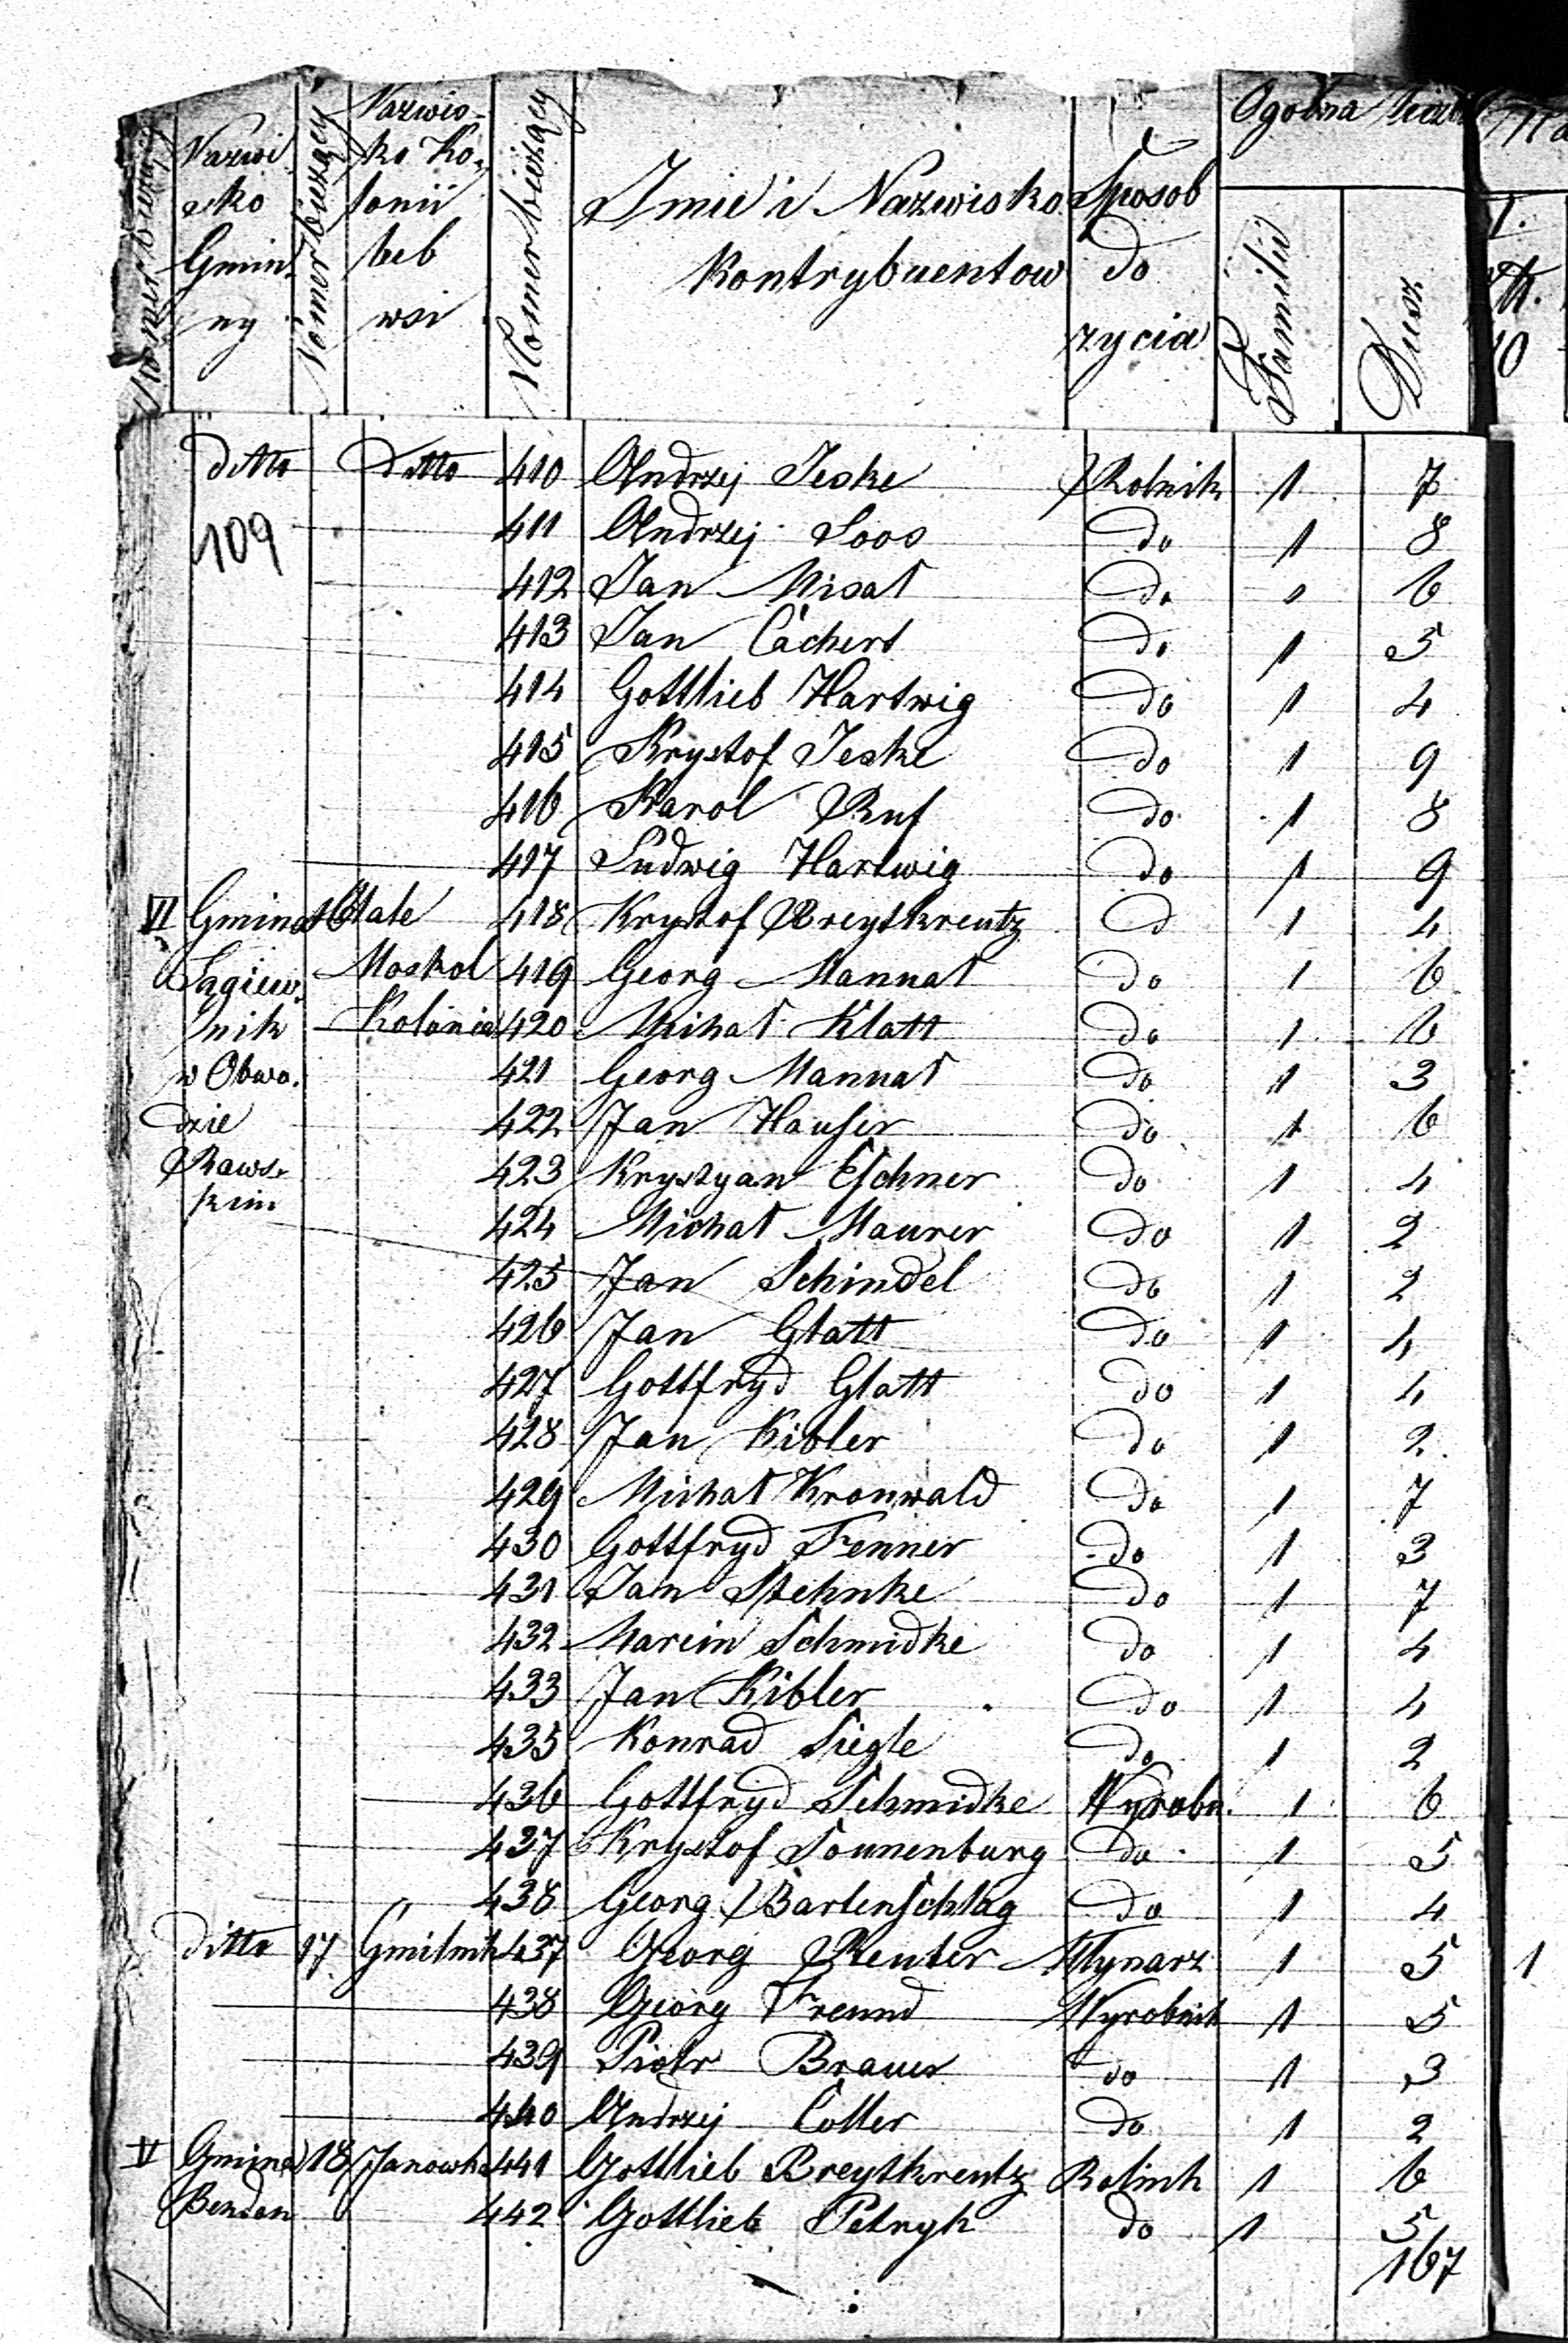 Ogolna liczba
Nomer bieżący | Nazwisko Gminny | Nomer bieżący | Nazwisko Kolonii lub wsi | Nomer bieżący | Imie i Nazwisko Kontrybuentow | Sposob do zycia | Familii | Dusz
ditto Ditto 410 Andrzej Jeske Rolnik 1 7
109 411 Andrzej Loos do 1 8
412 Jan Misał do 1 6
413 Jan Cächert do 1 5
414 Gottlieb Hartwig do 1 4
415 Krystof Jeske do 1 9
416 Karol Ruf do 1 8
417 Ludwig Hartwig do 1 9
VI Gmina 16 418 Krystof Breytkreutz d 1 4
Łagiew- Moskol 419 Georg Mannał do 1 6
nik Kolonia 420 Michał Klatt do 1 6
w Obwo- 421 Georg Mannał do 1 3
dzie 422 Jan Hauser do 1 6
Raws- 423 Krystyan Eschner do 1 4
kim
424 Michał Maurer do 1 2
425 Jan Schindel do 1 2
426 Jan Glatt do 1 4
427 Gottfryd Glatt do 1 4
428 Jan Kibler do 1 2
429 Michał Kronwald do 1 7
430 Gottfryd Fenner do 1 3
431 Jan Stehnke do 1 7
432 Marcin Schmidke do 1 4
433 Jan Kibler do 1 4
435 Konrad Siegle do 1 2
436 Gottfryd Schmidke Wyrobn. 1 6
437 Krystof Sonnenburg do 1 5
438 Georg Bartenschlag do 1 4
ditto 17 Gmilnik 437 Georg Reuter Młynarz 1 5 1
438 Georg Freund Wyrobnik 1 5
439 Piotr Brauer do 1 3
440 Andrzej Coller do 1 2
V Gmina 18 Janowka 441 Gottlieb Breytkreutz Rolnik 1 6
Benden 442 Gottlieb Petryk do 1 5
167